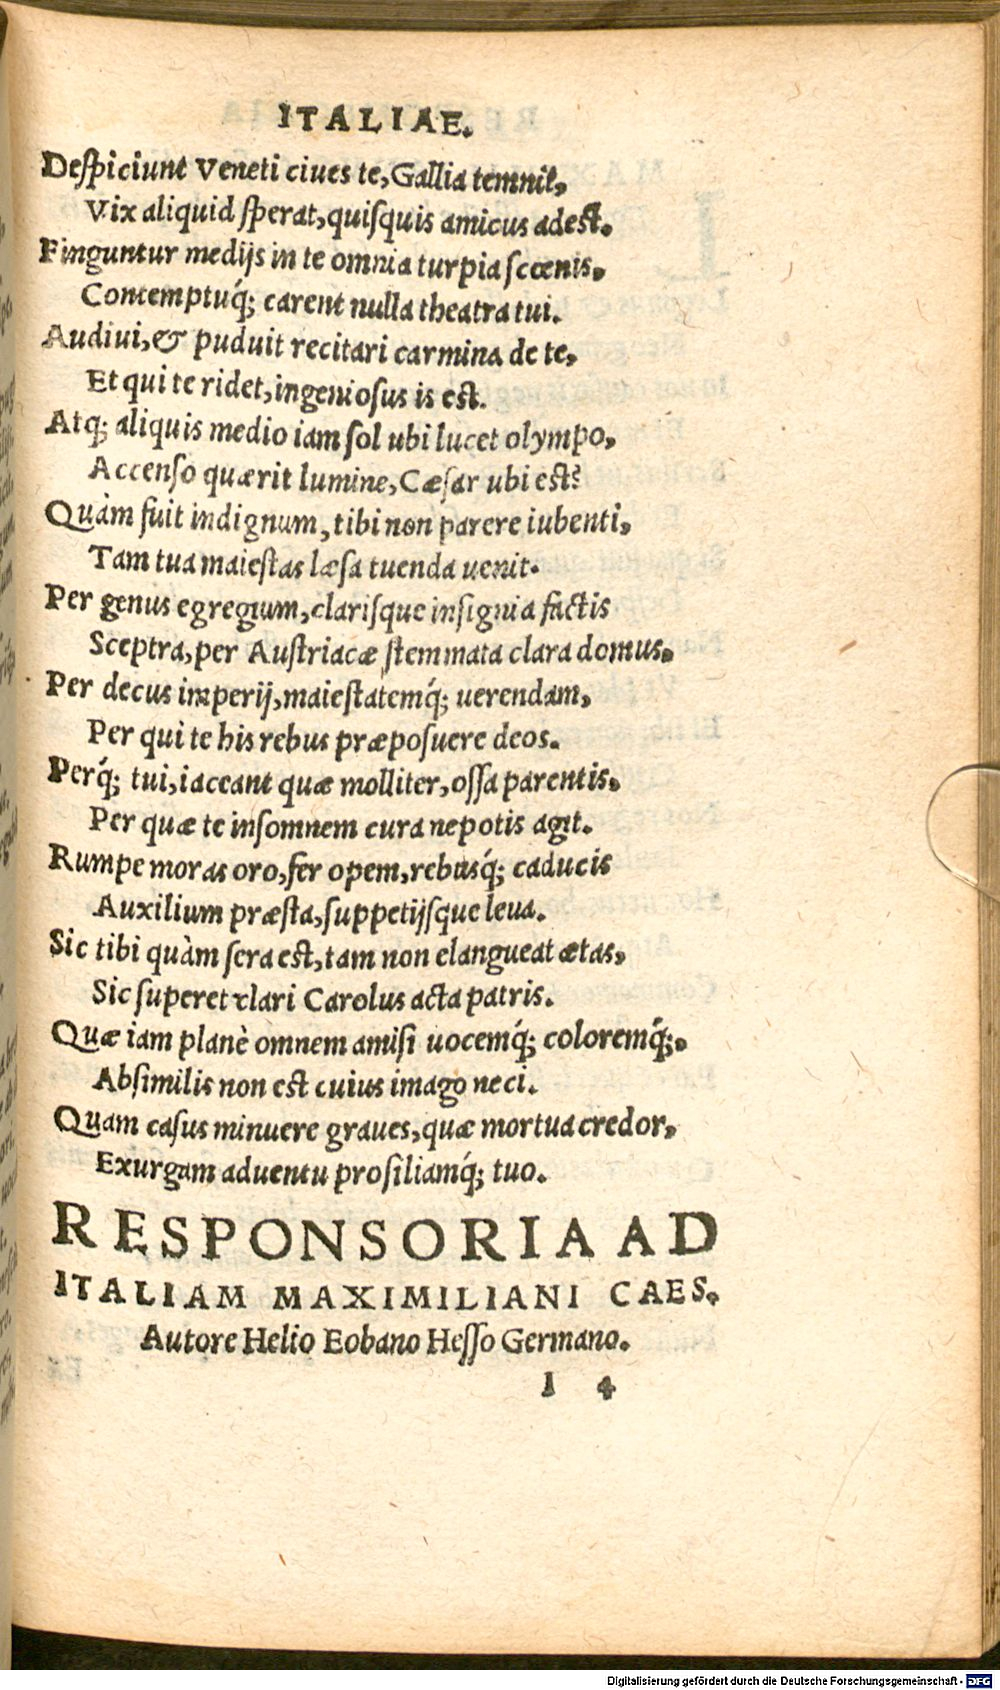 ITALIAE.
Despiciunt Veneti ciues te, Gallia temnit,
Vix aliquid sperat, quisquis amicus adest.
Finguntur medijs in te omnia turpia scœnis,
Contemptuq́; carent nulla theatra tui.
Audiui, & puduit recitari carmina de te,
Et qui te ridet, ingeniosus is est.
Atq; aliquis medio iam sol ubi lucet olympo,
Accenso quærit lumine, Cæsar ubi est?
Quàm fuit indignum, tibi non parere iubenti,
Tam tua maiestas læsa tuenda uenit.
Per genus egregium, clarisque insignia factis
Sceptra, per Austriacæ stemmata clara domus,
Per decus imperij, maiestatemq́; uerendam,
Per qui te his rebus præposuere deos.
Perq́; tui, iaceant quæ molliter, ossa parentis,
Per quæ te insomnem cura nepotis agit.
Rumpe moras oro, fer opem, rebusq́; caducis
Auxilium præsta, suppetijsque leua.
Sic tibi quàm sera est, tam non elangueat ætas,
Sic superet clari Carolus acta patris.
Quæ iam planè omnem amisi uocemq́; coloremq́;,
Absimilis non est cuius imago neci.
Quam casus minuere graues, quæ mortua credor,
Exurgam aduentu prosiliamq́; tuo.
RESPONSORIA AD
ITALIAM MAXIMILIANI CAES.
Autore Helio Eobano Hesso Germano.
I 4
Digitalisierung gefördert durch die Deutsche Forschungsgemeinschaft - DFG